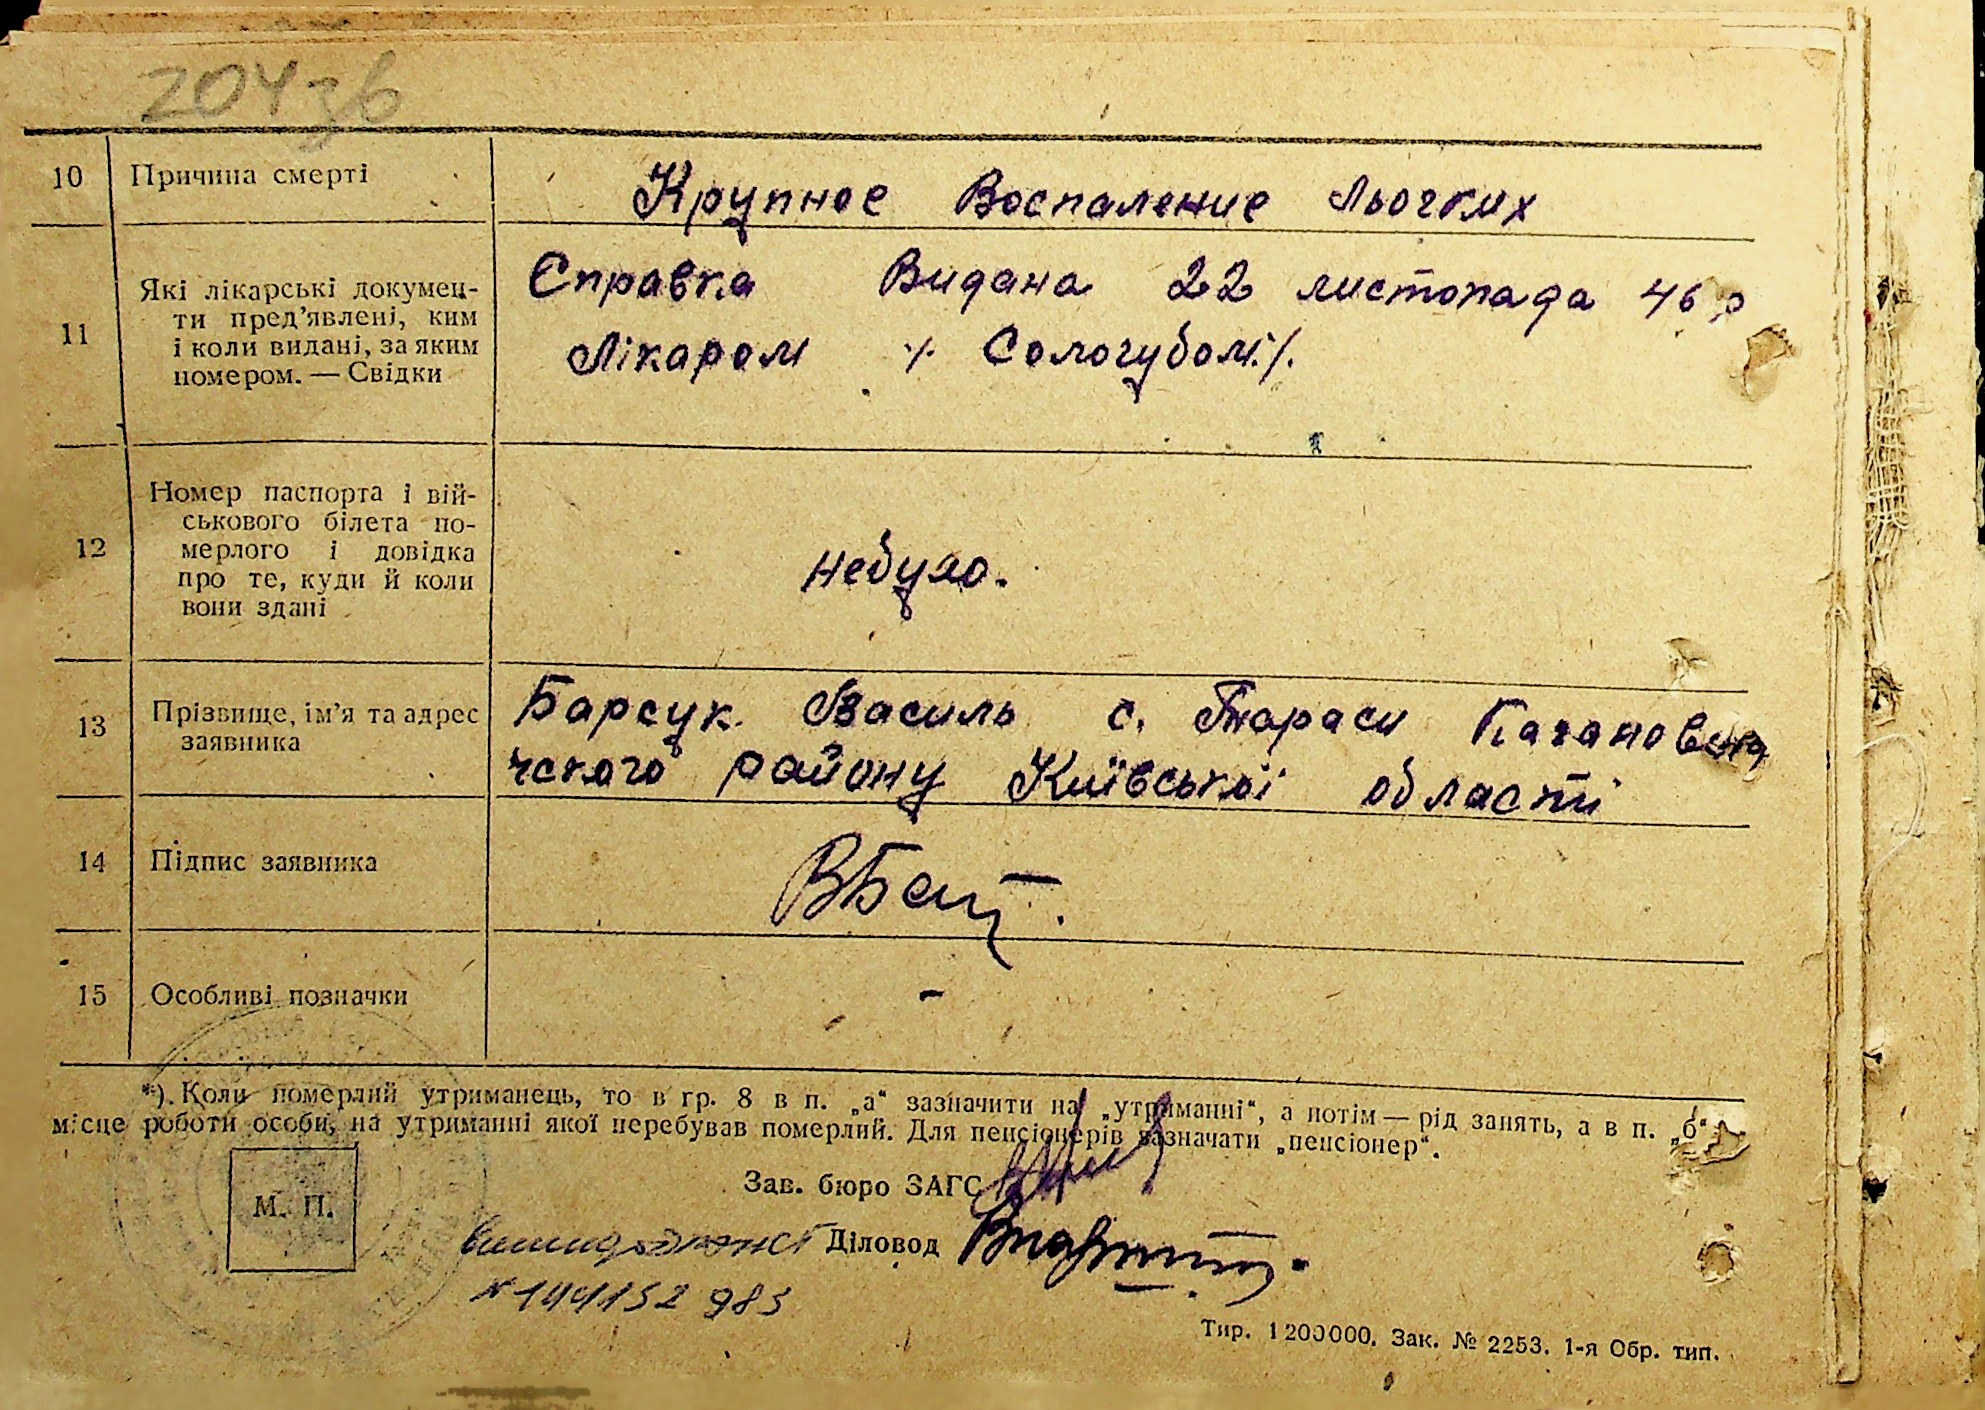 204зв
10 Причина смерті Крупное Воспаление Льогких
11 Які лікарські докумен-
ти пред’явлені, ким
і коли видані, за яким
номером. — Свідки
Справка Видана 22 листопада 46 р
Лікаром ·/. Сологубом ·/.
12 Номер паспорта і вій-
ськового білета по-
мерлого і довідка
про те, куди й коли
вони здані
небуло.
13 Прізвище, ім’я та адрес
заявника
Барсук Василь с. Тараси Каганови
чского району Київської області
14 Підпис заявника
15 Особливі позначки –
*) Коли померлий утриманець, то в гр. 8 в п. „а“ зазначити на „утриманні“, а потім — рід занять, а в п. „б“
місце роботи особи, на утриманні якої перебував померлий. Для пенсіонерів зазначати „пенсіонер“.
М. П.
Зав. бюро ЗАГС
Діловод
№ 144152 983
Тир. 1 200000. Зак. № 2253. 1-я Обр. тип.